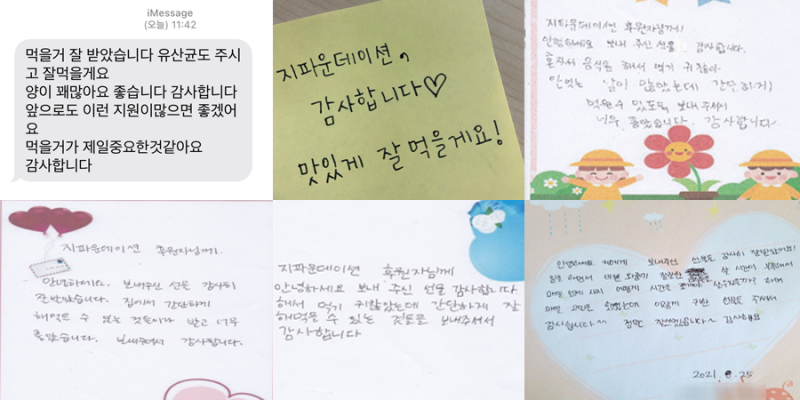 iMessage
(오늘) 11:42
먹을거 잘 받았습니다 유산균도 주시
고 잘먹을게요
양이 꽤많아요 좋습니다 감사합니다
앞으로도 이런 지원이많으면 좋겠어
요
먹을거가 제일중요한것같아요
감사합니다
지파운데이션,
감사합니다♡
맛있게 잘 먹을게요!
지파운데이션 후원자님께!
안녕하세요 보내 주신 선물 감사합니다.
혼자서 음식을 해서 먹기 귀찮아
안먹는 날이 많았는데 간단하게
먹을수 있도록 보내주셔서
너무 좋았습니다. 감사합니다
지파운데이션 후원자님께.
안녕하세요. 보내주신 선물 감사히
잘받았습니다. 집에서 간단하게
해먹을 수 있는 것들이라 받고 너무
좋았습니다. 보내주셔서 감사합니다.
지파운데이션 후원자님께
안녕하세요 보내 주신 선물 감사합니다
해서 먹기 귀찮았는데 간단하게 잘
해먹을 수 있는 것들을 보내주셔서
감사합니다
안녕하세요 저에게 보내주신 선물도 감사히 잘받았어요!
감사합니다~ 정말 잘쓰겠습니다~ 감사해요
2021.8.25